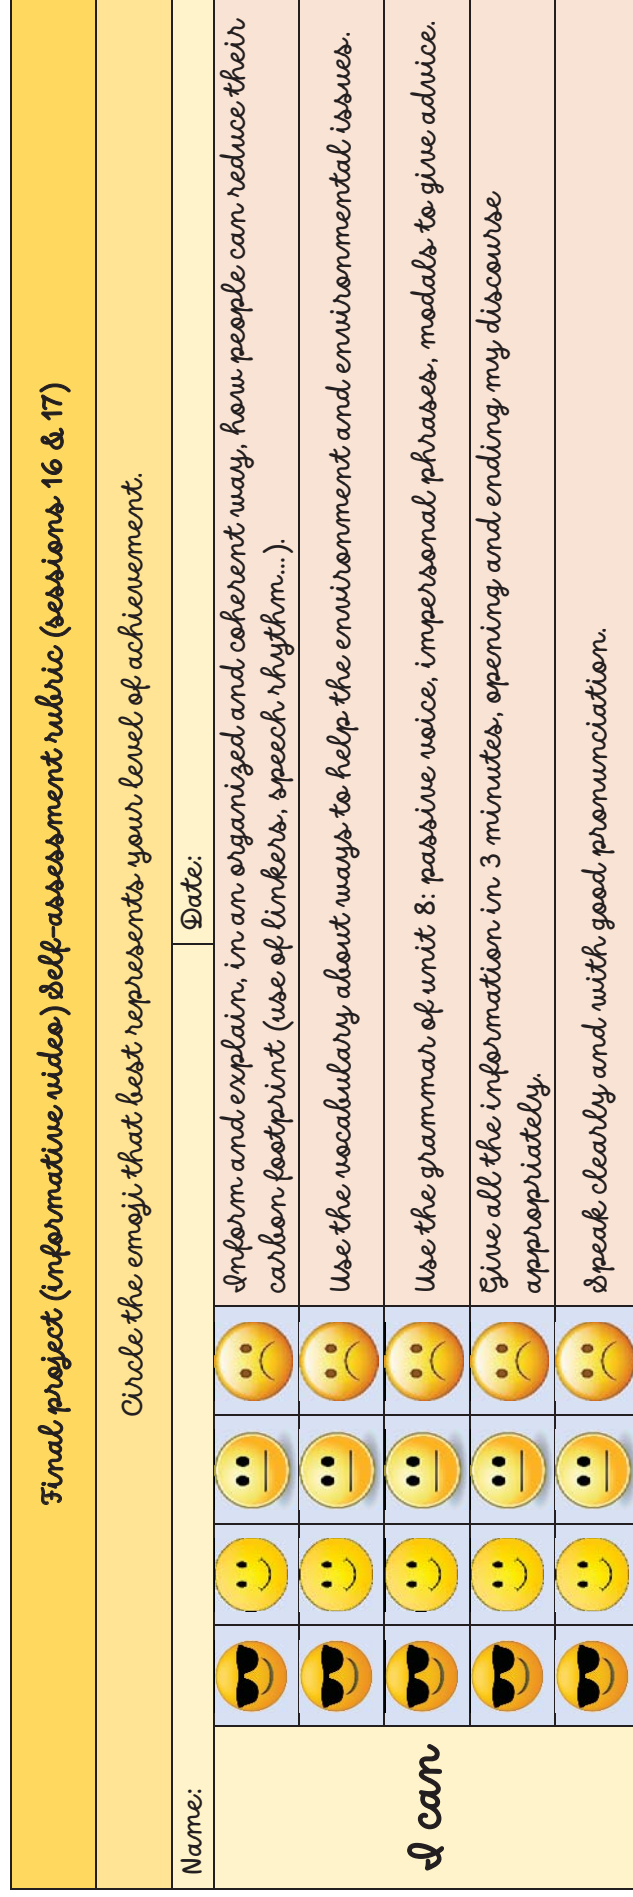 Final project (informative video) Self-assessment rubric (sessions 16 & 17)
Circle the emoji that best represents your level of achievement.
Name:
Date:
I can
Inform and explain, in an organized and coherent way, how people can reduce their
carbon footprint (use of linkers, speech rhythm...).
Use the vocabulary about ways to help the environment and environmental issues.
Use the grammar of unit 8: passive voice, impersonal phrases, modals to give advice.
Give all the information in 3 minutes, opening and ending my discourse
appropriately.
Speak clearly and with good pronunciation.